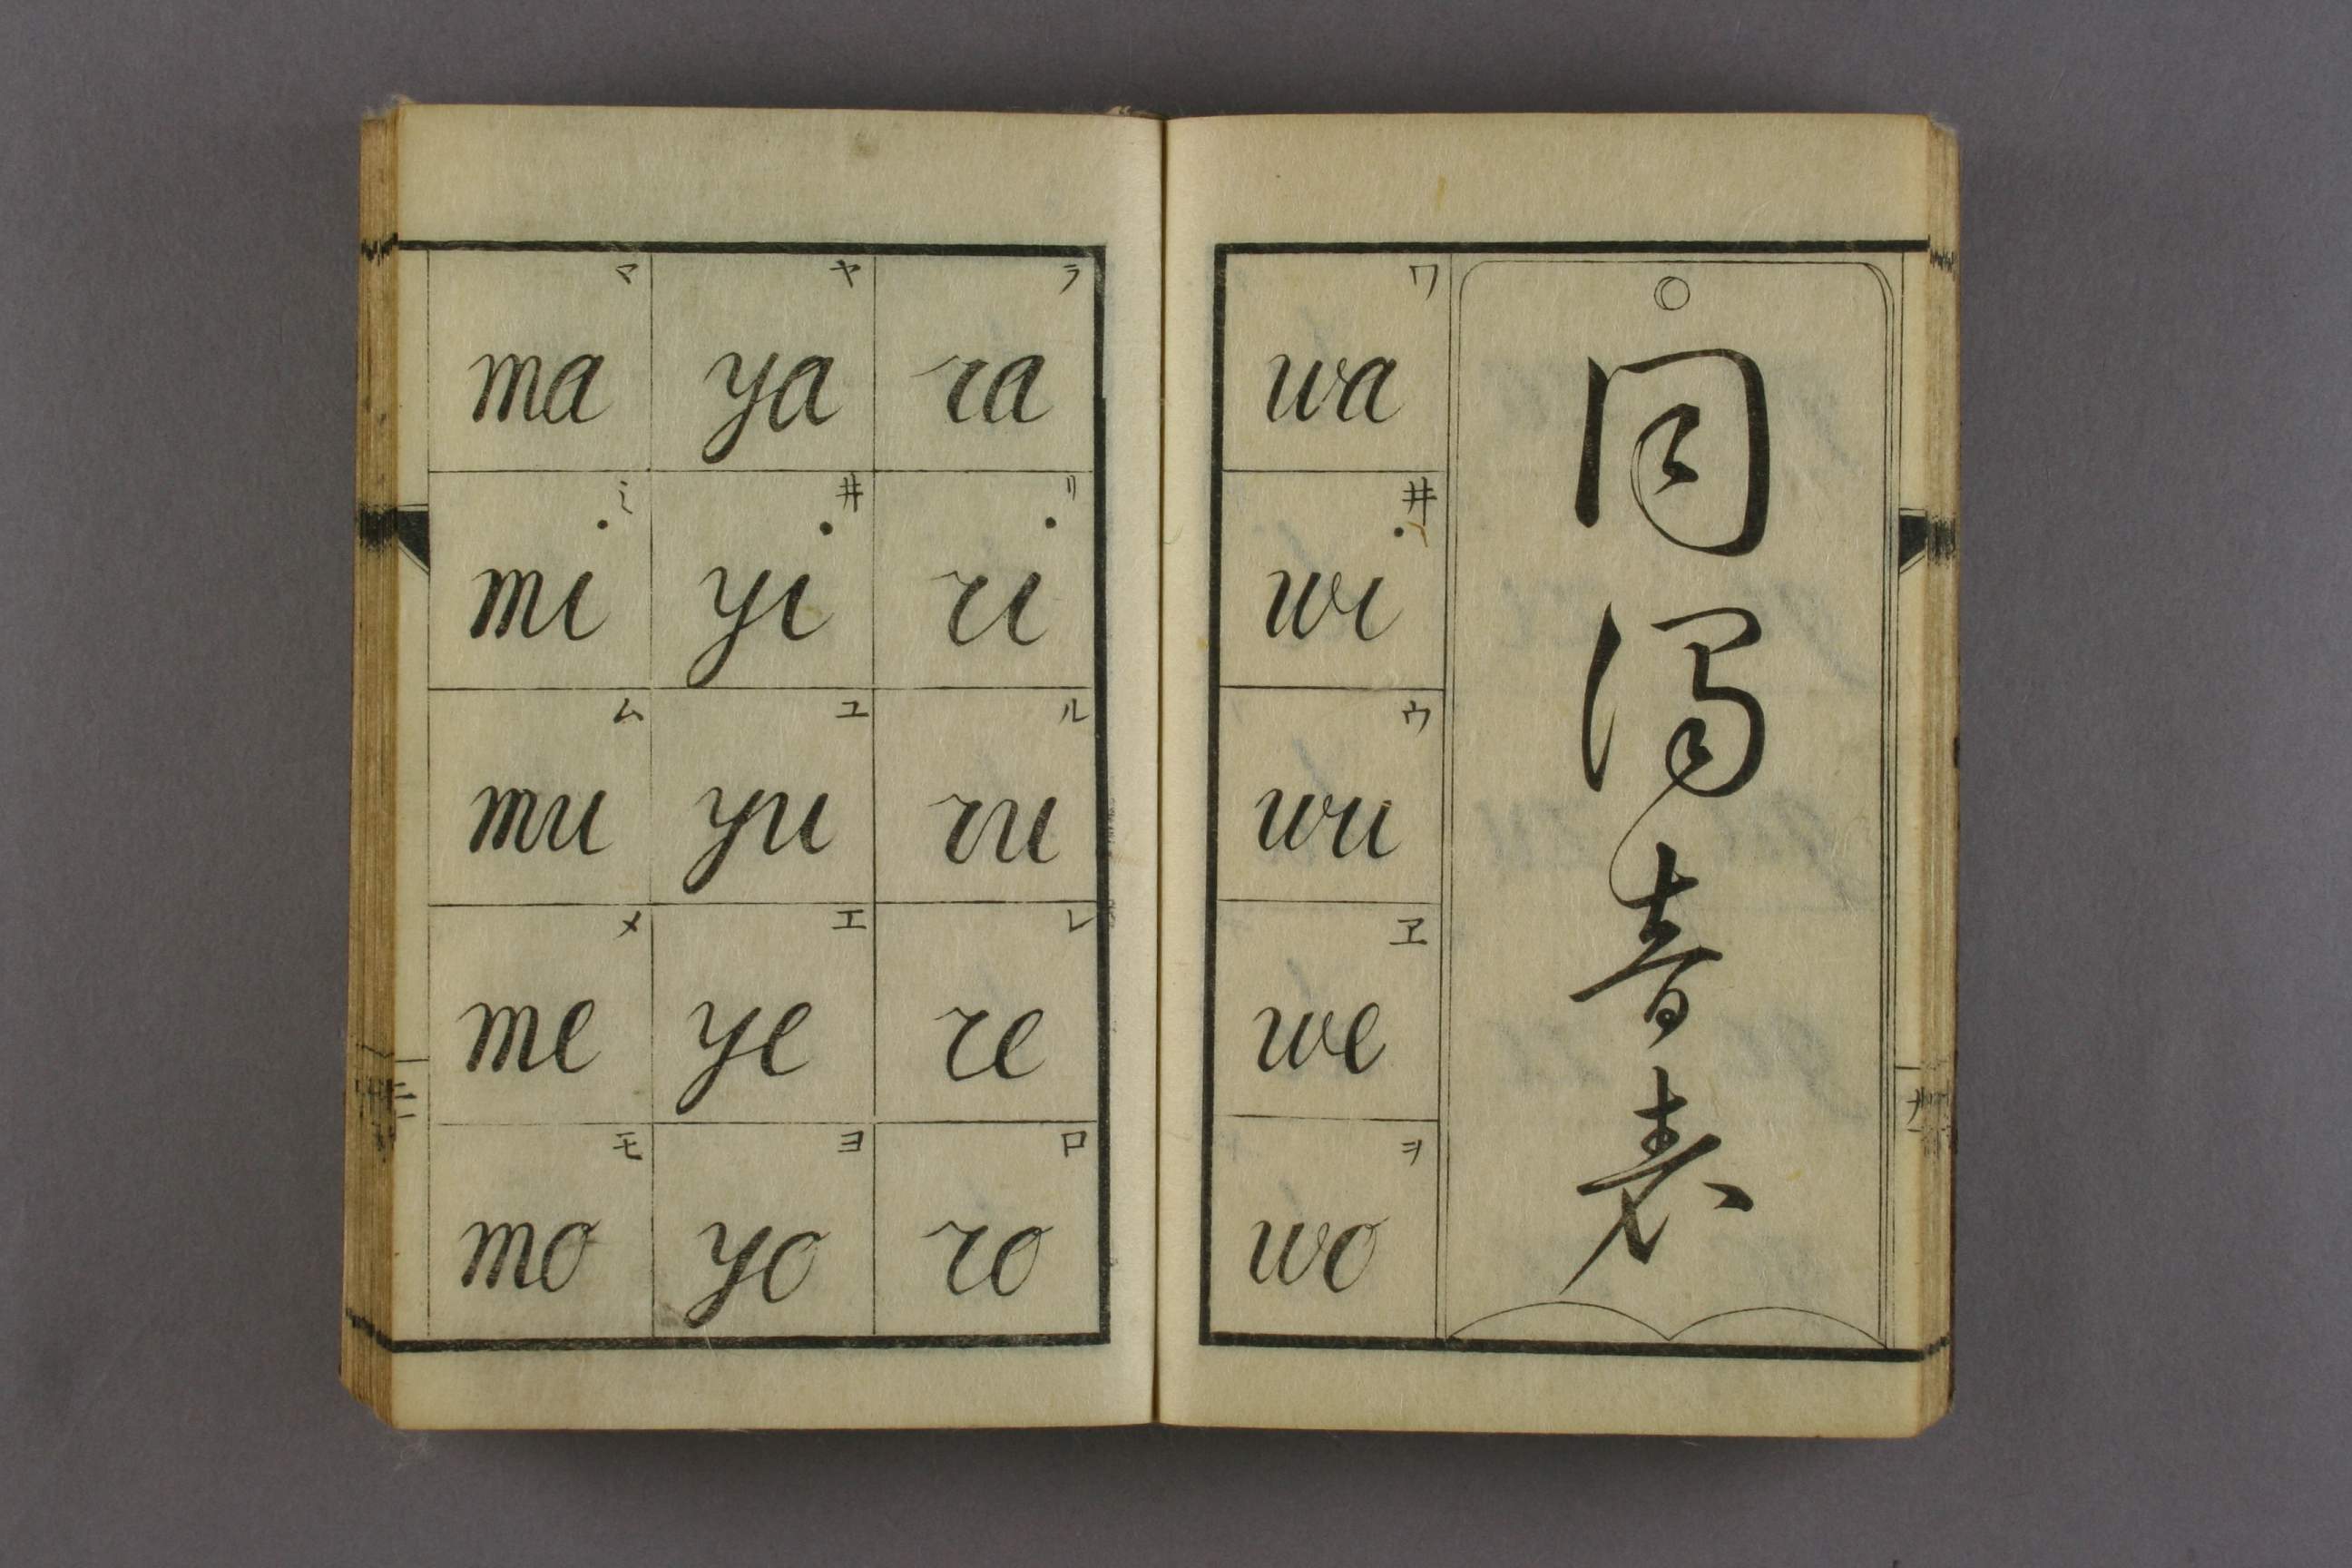 マ ma
ミ mi
ム mu
メ me
モ mo
ヤ ya
井 yi
ユ yu
エ ye
ヨ yo
ラ ra
リ ri
ル ru
レ re
ロ ro
ワ wa
井 wi
ウ wu
ヱ we
ヲ wo
同濁音表